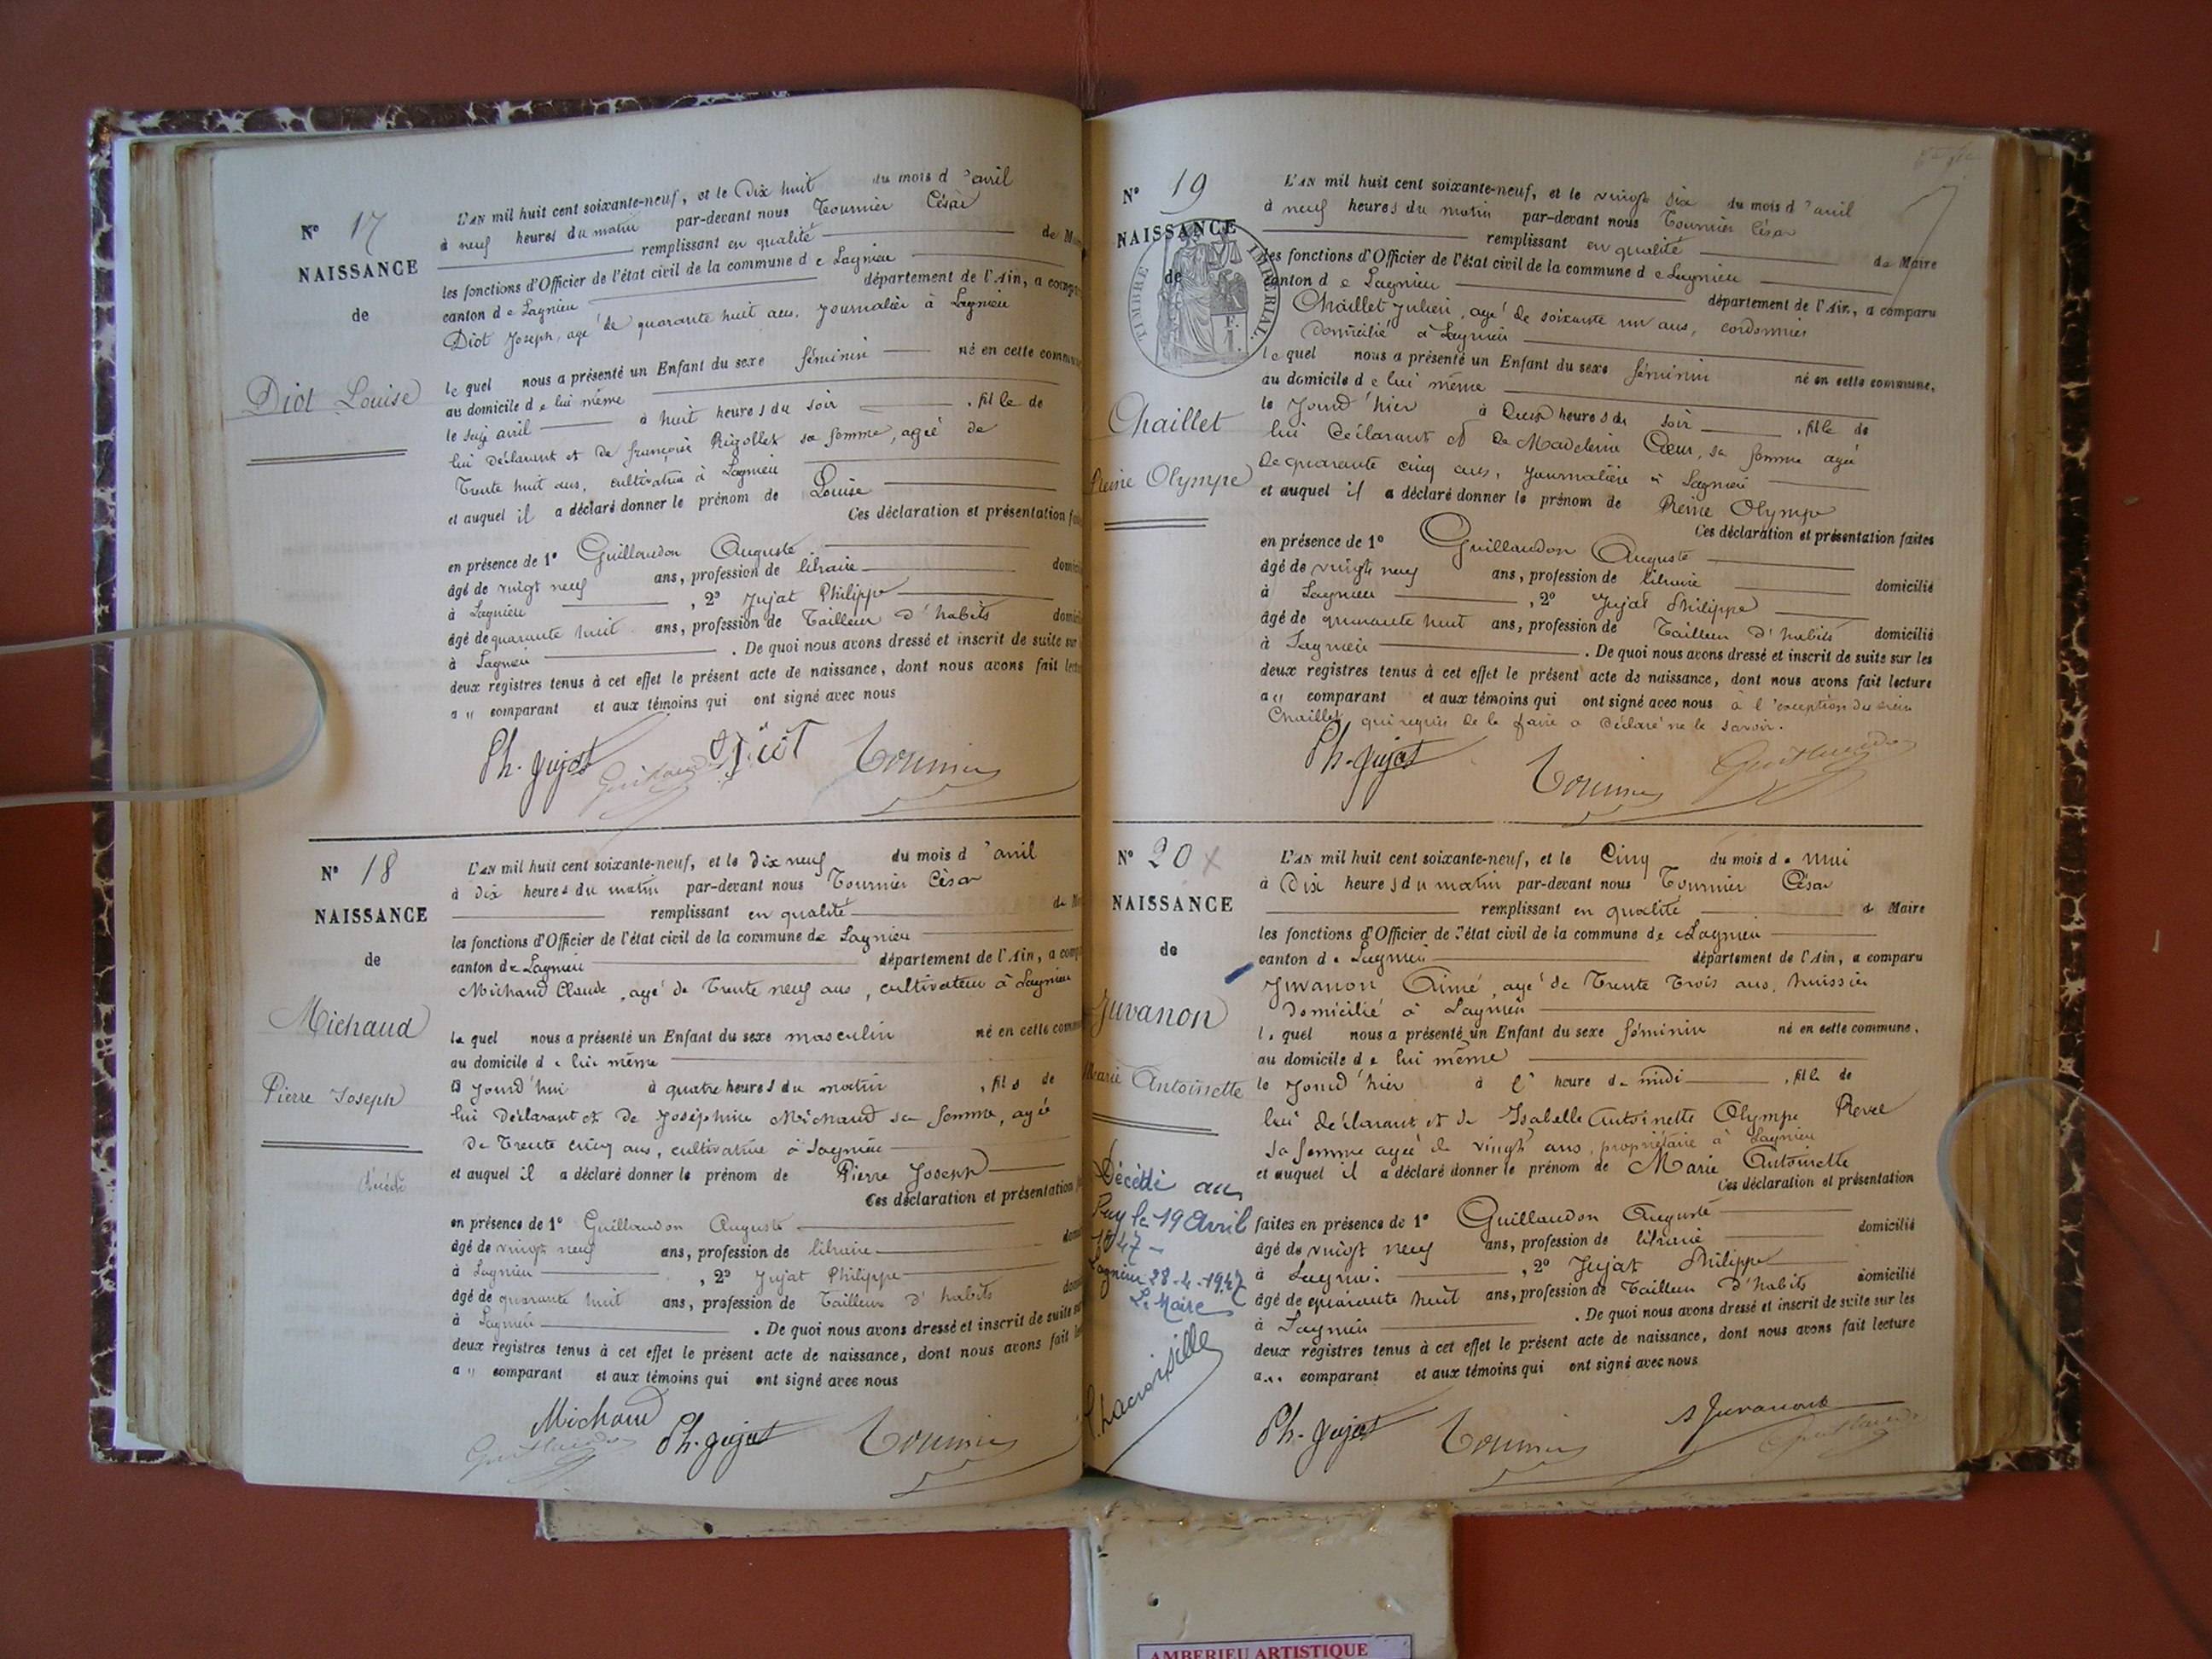 N° 17
NAISSANCE
de
Diot Louise
L'AN mil huit cent soixante-neuf, et le Dix huit du mois d'avril
à neuf heures du matin par-devant nous Tournier César
remplissant en qualité de
les fonctions d'Officier de l'état civil de la commune de Lagnieu
canton de Lagnieu département de l'Ain, a
Diot Joseph, agé de quarante huit ans, journalier à Lagnieu
lequel nous a présenté un Enfant du sexe féminin né en cette
au domicile de lui même
le seize avril à huit heures du soir, fille de
lui déclarant et de françoise Rigollet sa femme, agée de
Trente huit ans, cultivatrice à Lagnieu
et auquel il a déclaré donner le prénom de Louise
Ces déclaration et présentation
en présence de 1° Guillaudon Auguste
âgé de vingt neuf ans, profession de libraire
à Lagnieu, 2° Jujat Philippe
âgé de quarante huit ans, profession de Tailleur d'habits
à Lagnieu. De quoi nous avons dressé et inscrit de suite sur
deux registres tenus à cet effet le présent acte de naissance, dont nous avons fait
au comparant et aux témoins qui ont signé avec nous
Ph. Jujat Guillaudon Diot Tournier
N° 18
NAISSANCE
de
Michaud
Pierre Joseph
L'AN mil huit cent soixante-neuf, et le dix neuf du mois d'avril
à dix heures du matin par-devant nous Tournier César
remplissant en qualité de
les fonctions d'Officier de l'état civil de la commune de Lagnieu
canton de Lagnieu département de l'Ain, a
Michaud Claude, agé de Trente neuf ans, cultivateur à Lagnieu
lequel nous a présenté un Enfant du sexe masculin né en cette
au domicile de lui même
jourd'hui à quatre heures du matin, fils de
lui déclarant et de Joséphine Michaud sa femme, agée
de Trente cinq ans, cultivatrice à Lagnieu
et auquel il a déclaré donner le prénom de Pierre Joseph
Ces déclaration et présentation
en présence de 1° Guillaudon Auguste
âgé de vingt neuf ans, profession de libraire
à Lagnieu, 2° Jujat Philippe
âgé de quarante huit ans, profession de Tailleur d'habits
à Lagnieu. De quoi nous avons dressé et inscrit de suite
deux registres tenus à cet effet le présent acte de naissance, dont nous avons fait
au comparant et aux témoins qui ont signé avec nous
Michaud
Guillaudon Ph. Jujat Tournier
N° 19
NAISSANCE
de
TIMBRE IMPERIAL
Chaillet
Reine Olympe
L'AN mil huit cent soixante-neuf, et le vingt six du mois d'avril
à neuf heures du matin par-devant nous Tournier César
remplissant en qualité de Maire
les fonctions d'Officier de l'état civil de la commune de Lagnieu
canton de Lagnieu département de l'Ain, a comparu
Chaillet Julien, agé de soixante un ans, cordonnier
domicilié à Lagnieu
lequel nous a présenté un Enfant du sexe féminin né en cette commune,
au domicile de lui même
le jourd'hier à Deux heures du soir, fille de
lui déclarant et de Madeleine Cœur, sa femme agée
de quarante cinq ans, journalière à Lagnieu
et auquel il a déclaré donner le prénom de Reine Olympe
Ces déclaration et présentation faites
en présence de 1° Guillaudon Auguste
âgé de vingt neuf ans, profession de libraire domicilié
à Lagnieu, 2° Jujat Philippe
âgé de quarante huit ans, profession de Tailleur d'habits domicilié
à Lagnieu. De quoi nous avons dressé et inscrit de suite sur les
deux registres tenus à cet effet le présent acte de naissance, dont nous avons fait lecture
au comparant et aux témoins qui ont signé avec nous à l'exception du sieur
Chaillet qui requis de le faire a déclaré ne le savoir.
Ph. Jujat Tournier Guillaudon
N° 20
NAISSANCE
de
Juvanon
Marie Antoinette
Décédé au
Puy le 19 Avril
1947
Lagnieu 28-4-1947
Le Maire
L'AN mil huit cent soixante-neuf, et le Cinq du mois de mai
à Dix heures du matin par-devant nous Tournier César
remplissant en qualité de Maire
les fonctions d'Officier de l'état civil de la commune de Lagnieu
canton de Lagnieu département de l'Ain, a comparu
Juvanon Aimé, agé de Trente Trois ans, huissier
domicilié à Lagnieu
lequel nous a présenté un Enfant du sexe féminin né en cette commune,
au domicile de lui même
le jourd'hier à heure de midi, fille de
lui déclarant et de Isabelle Antoinette Olympe Revel
sa femme agée de vingt ans, propriétaire à Lagnieu
et auquel il a déclaré donner le prénom de Marie Antoinette
Ces déclaration et présentation
faites en présence de 1° Guillaudon Auguste
âgé de vingt neuf ans, profession de libraire domicilié
à Lagnieu, 2° Jujat Philippe
âgé de quarante huit ans, profession de Tailleur d'habits domicilié
à Lagnieu. De quoi nous avons dressé et inscrit de suite sur les
deux registres tenus à cet effet le présent acte de naissance, dont nous avons fait lecture
au comparant et aux témoins qui ont signé avec nous
Ph. Jujat Tournier A Juvanon Guillaudon
AMBERIEU ARTISTIQUE